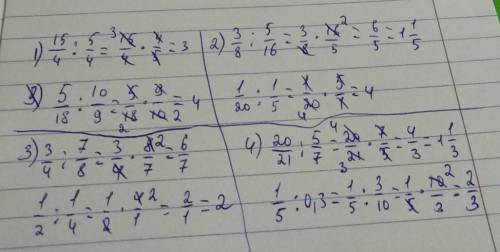 1) 15/4 : 5/4 = ³15/4 · 4/5 = 3
2) 3/8 : 5/16 = 3/8 · 16²/5 = 6/5 = 1 1/5
2) 5/18 : 10/9 = 5/18₂ · 9/10₂ = 4
1/20 : 1/5 = 1/20₄ · 5/1 = 4
3) 3/4 : 7/8 = 3/4 · 8²/7 = 6/7
4) 20/21 : 5/7 = ⁴20/21₃ · 7/5 = 4/3 = 1 1/3
1/2 : 1/4 = 1/2 · 4²/1 = 2/1 = 2
1/5 : 0,3 = 1/5 : 3/10 = 1/5 · 10²/3 = 2/3